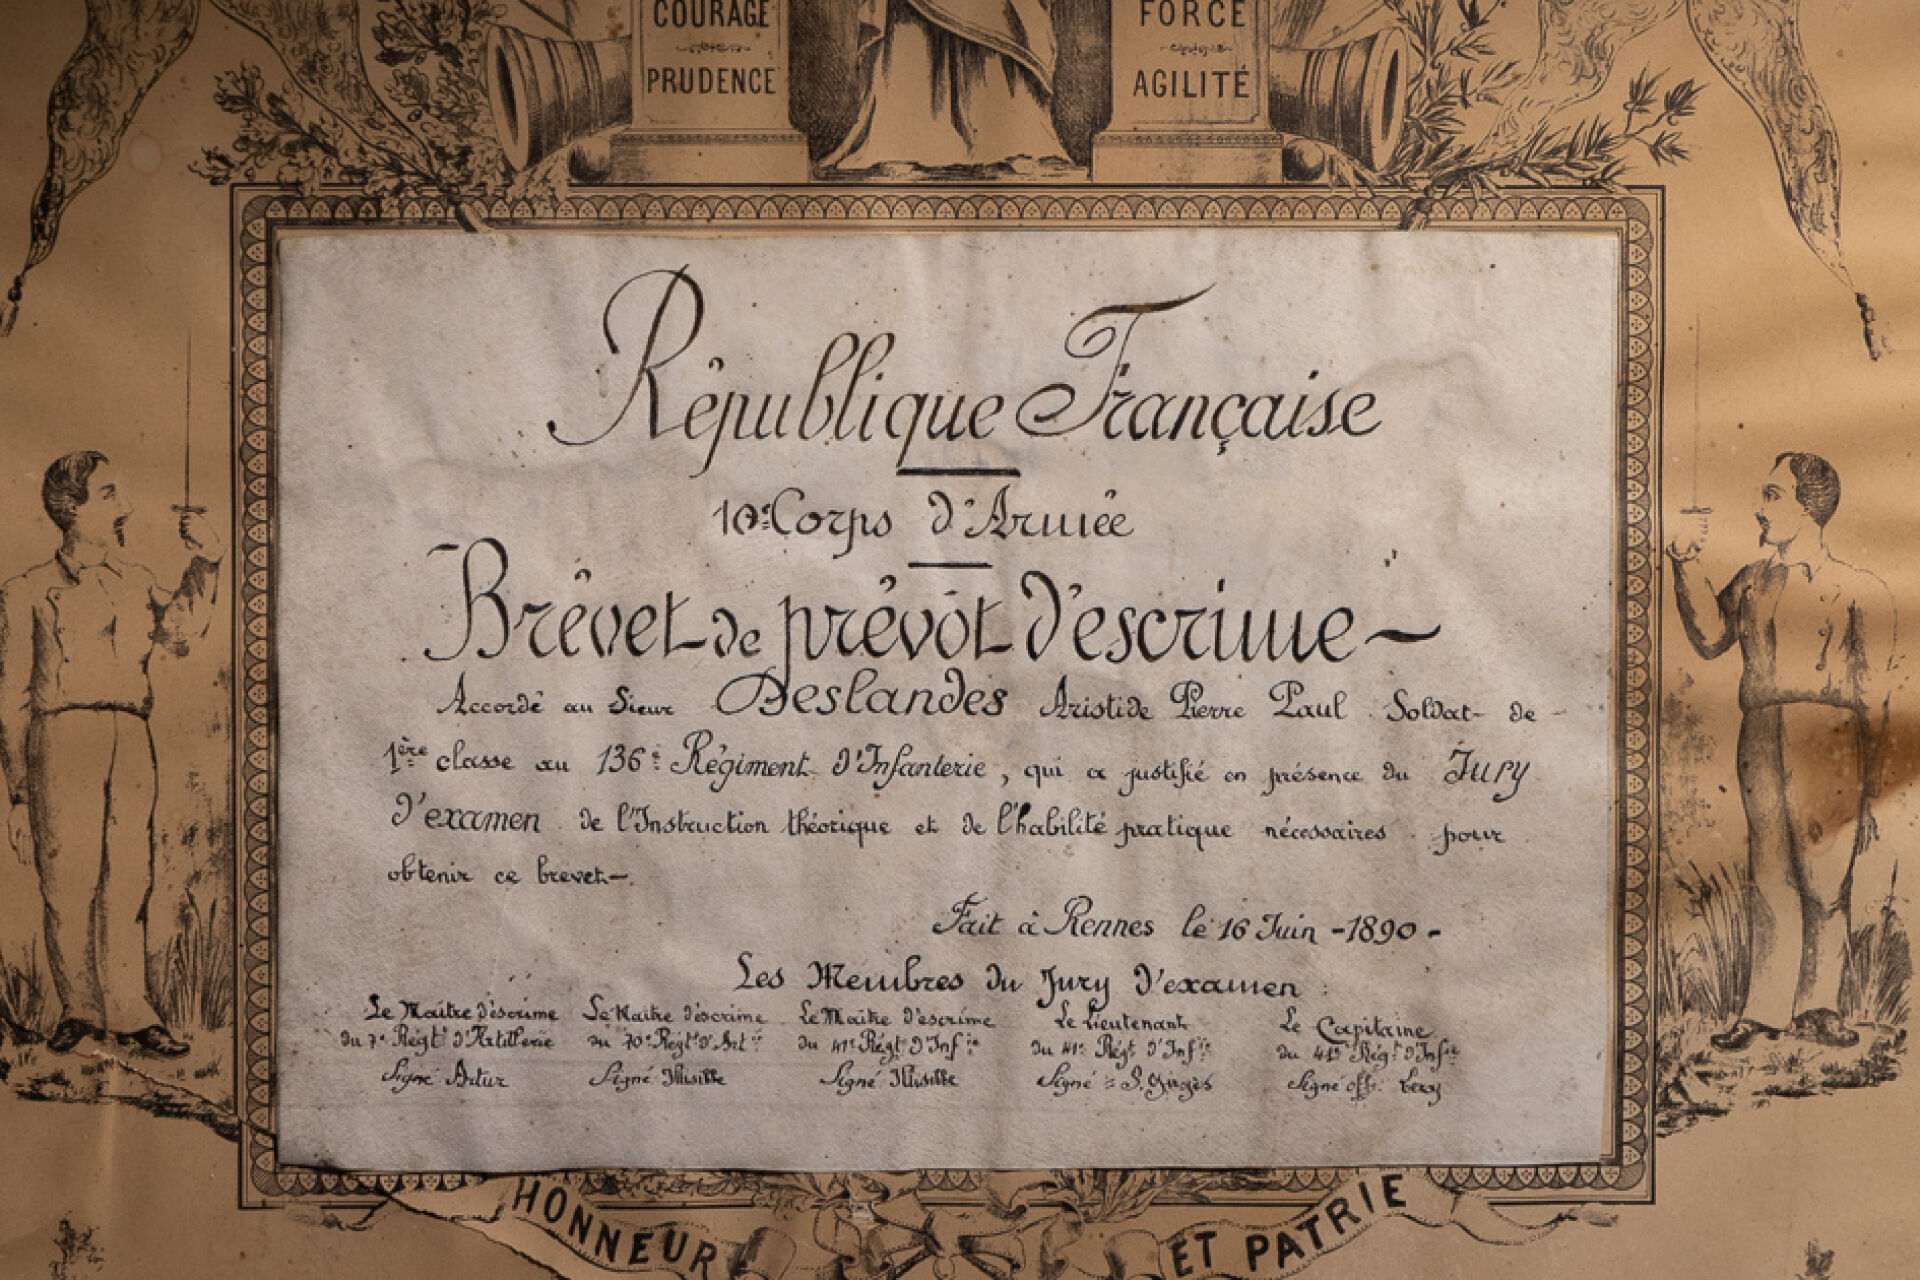 COURAGE
PRUDENCE
FORCE
AGILITÉ
République Française
10e Corps d'Armée
Brévet de prévôt d'escrime
Accordé au Sieur Deslandes Aristide Pierre Paul Soldat de
1ère classe au 136e Régiment d'Infanterie, qui a justifié en présence du Jury
d'examen de l'Instruction théorique et de l'habilité pratique nécessaires pour
obtenir ce brevet.
Fait à Rennes le 16 Juin -1890-
Les Membres du Jury d'examen :
Le Maître d'éscrime
du 7e Régt d'Artillerie
Signé Artur
Le Maitre d'éscrime
du 70e Régt d'Art ie
Signé Illisible
Le Maitre d'escrime
du 41e Régt d'Inf ie
Signé Illisible
Le Lieutenant
du 41e Régt d'Inf ie
Signé = S.
Le Capitaine
du 41e Régt d'Inf ie
Signé
HONNEUR ET PATRIE